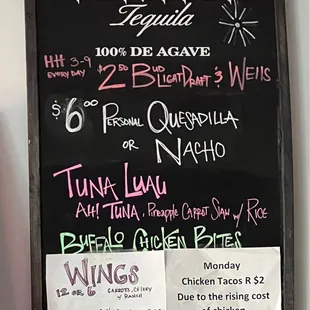 Tequila
100% DE AGAVE
HH 3-9
EVERY DAY
$2⁵⁰ BUD LIGHT DRAFT & WELLS
$6⁰⁰ PERSONAL QUESADILLA
OR NACHO
TUNA LUAU
AHI TUNA, Pineapple CARROT SLAW w/ RICE
BUFFALO CHICKEN BITES
WINGS
12 OR 6 CARROTS, CELERY
w/ RANCH
Monday
Chicken Tacos R $2
Due to the rising cost
of chicken